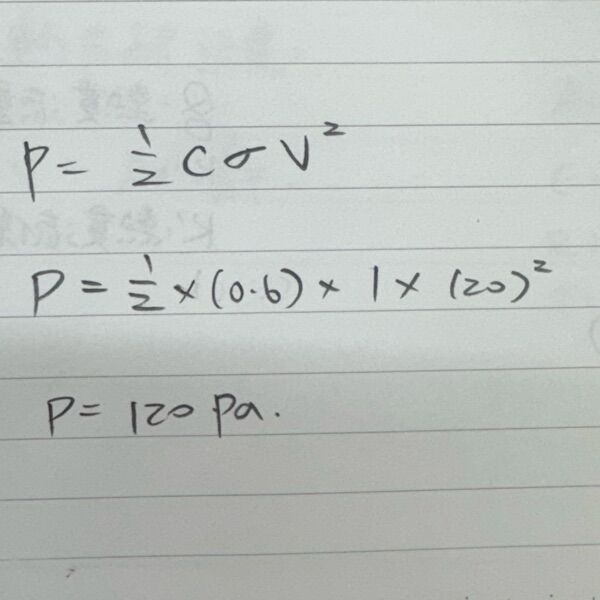 P = 1/2 C σ V²
P = 1/2 × (0.6) × 1 × (20)²
P = 120 Pa.